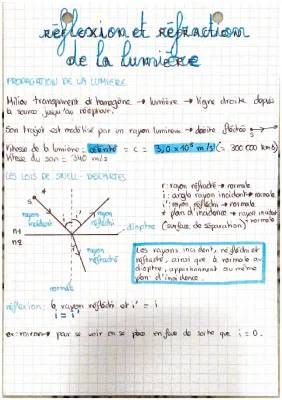 réflexion et réfraction
de la lumière
PROPAGATION DE LA LUMIERE
Milieu transparent et homogène → lumière → ligne droite depuis
la source jusqu'au récepteur.
Son trajet est modélisé par un rayon lumineux → droite fléchée S
Vitesse de la lumière: célérité = c = 3,0 x 10⁸ m/s (≈ 300 000 km/s)
Vitesse du son = 340 m/s
LES LOIS DE SNELL-DESCARTES
r: rayon réfracté → normale
i: angle rayon incident → normale
i': rayon réfléchi → normale
plan d'incidence → rayon incident
normale
S
rayon
incident
i
i'
rayon
réfléchi
dioptre (surface de séparation)
n1
n2
r
rayon
réfracté
normale
Les rayons incident, réfléchi et
réfracté, ainsi que la normale au
dioptre, appartiennent au même
plan d'incidence.
réflexion: rayon réfléchi et i' = i
i = i'
ex: miroir → pour se voir on se place en face de sorte que i = 0.